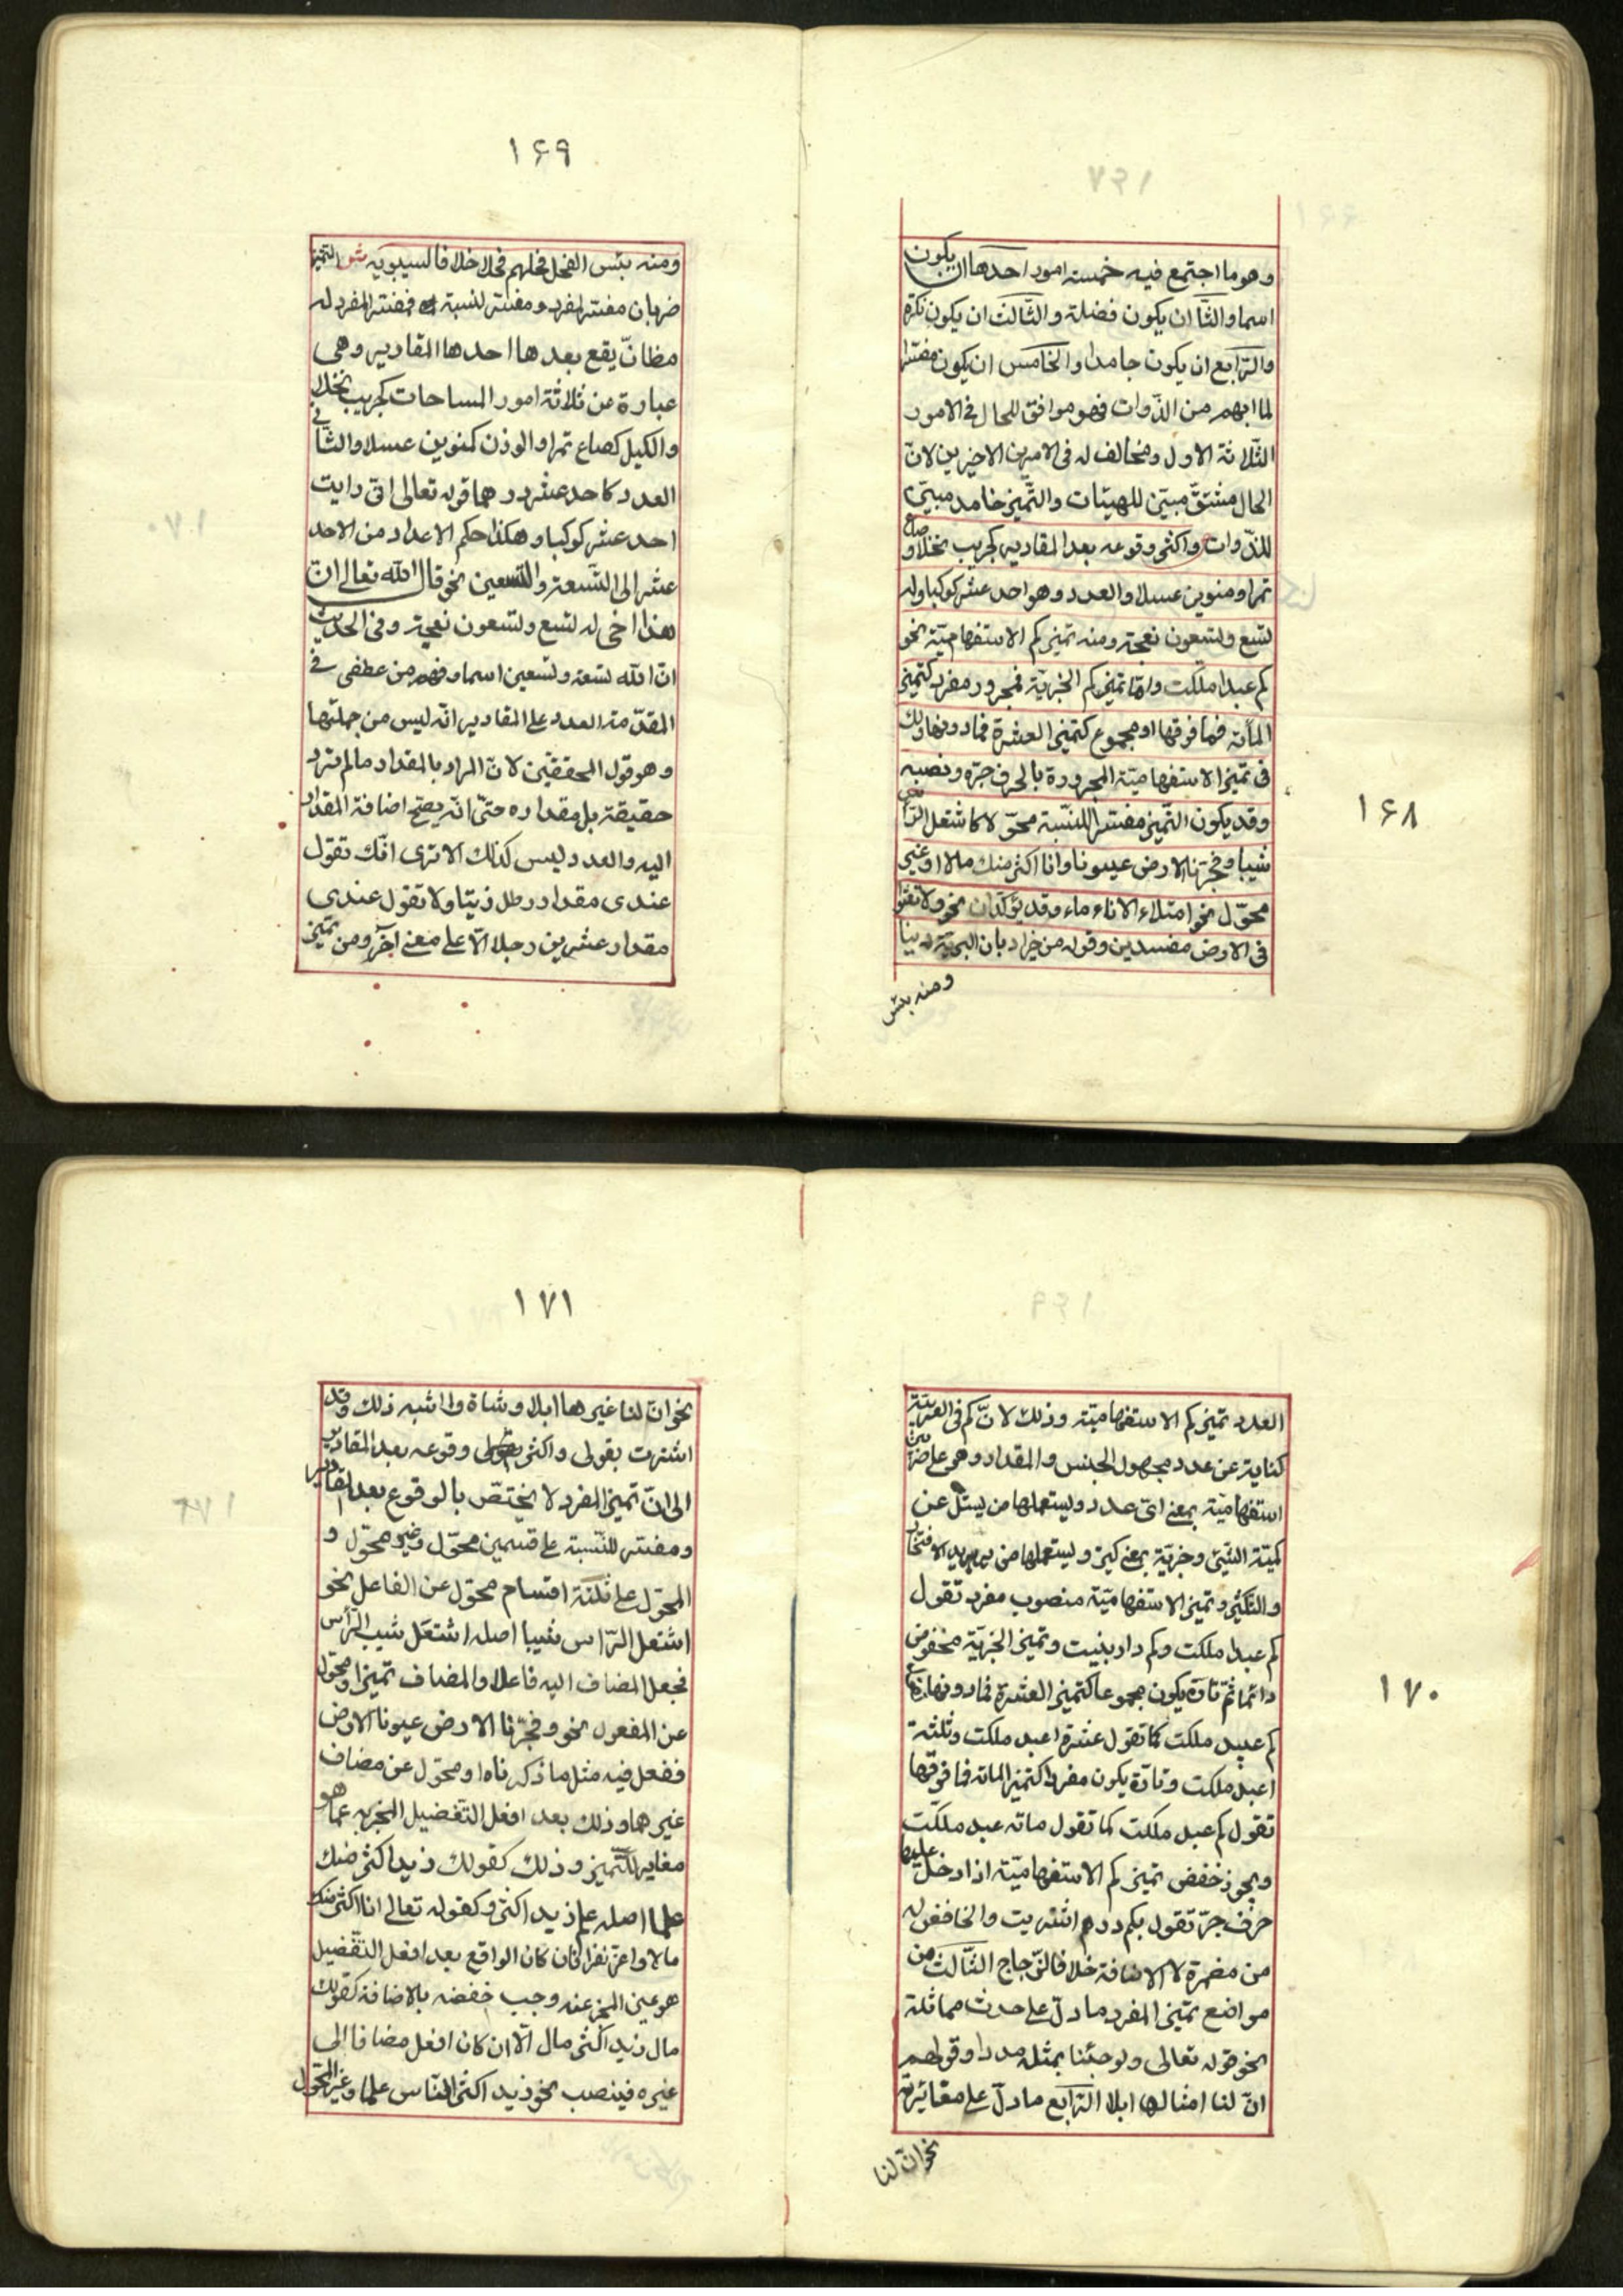 وهو ما اجتمع فيه خمسته امور احدها ان يكون
اسما والثّا ان يكون فضلة والثّالث ان يكون نكرة
والرّابع ان يكون جامدا والخامس ان يكون مفسّرا
لما ابهم من الذّوات فهو موافق للحال فى الامور
الثّلاثة الاول ومخالف له فى الامرين الاخيرين لانّ
الحال مشتقّ مبيّن للهيئات والتّميز جامد مبيّن
للذّوات واكثر وقوعه بعد المقادير كجريب نخلا وصاع
تمرا ومنوين عسلا والعدد وهو احد عشر كوكبا وله
تسع وتسعون نعجة ومنه تميز كم الاستفهاميّة نحو
كم عبدا ملكت وامّا تميز كم الخبريّة فمجرور مفرد كتميز
المأته فما فوقها او مجموع كتميز العشرة فما دونها ولك
فى تميز الاستفهاميّة المجرورة بالحرف جرّه ونصبه
وقد يكون التّميز مفسّرا للنّسبة محوّلا كاشتعل الرّأس
شيبا وفجّرنا الارض عيونا وانا اكثر منك مالا او غير
محوّل نحو امتلاء الاناء ماء وقد يؤكّدان نحو ولا تعثوا
فى الارض مفسدين وقوله من خير اديان البريّة دينا
ومنه بئس
۱۶۸
۱۶۹
ومنه بئس الفحل فحلهم فحلا خلافا لسيبويه ش التّميز
ضربان مفسّر لمفرد ومفسّر لنسبة فمفسّر المفرد له
مظانّ يقع بعدها احدها المقادير وهى
عبارة عن ثلاثة امور المساحات كجريب نخلا
والكيل كصاع تمرا والوزن كمنوين عسلا والثّانى
العدد كاحد عشر درهما قوله تعالى انّى رايت
احد عشر كوكبا وهكذا حكم الاعداد من الاحد
عشر الى التّسعة والتّسعين نحو قال الله تعالى انّ
هذا اخى له تسع وتسعون نعجة وفى الحديث
انّ الله تسعة وتسعين اسما وفهم من عطفى فى
المقدّمة العدد على المقادير انّه ليس من جملتها
وهو قول المحققين لانّ المراد بالمقدار ما لم ترد
حقيقة بل مقداره حتّى انّه يصحّ اضافة المقدار
اليه والعدد ليس كذلك الا ترى انّك تقول
عندى مقدار رطل زيتا ولا تقول عندى
مقدار عشرين رجلا الّا على معنى آخر ومن تميز
العدد تميز كم الاستفهاميّة وذلك لانّ كم فى العربيّة
كناية عن عدد مجهول الجنس والمقدار وهى على ضربين
استفهاميّة بمعنى اىّ عدد ويستعملها من يسئل عن
كميّة الشّيئ وخبريّة بمعنى كثير ويستعملها من يريد الافتخار
والتّكثير وتميز الاستفهاميّة منصوب مفرد تقول
كم عبدا ملكت وكم دار بنيت وتميز الخبريّة مخفوض
دائما ثمّ تارة يكون مجموعا كتميز العشرة فما دونها تقول
كم عبيد ملكت كما تقول عشرة اعبد ملكت وثلثة
اعبد ملكت وتارة يكون مفردا كتميز المائه فما فوقها
تقول كم عبد ملكت كما تقول مائه عبد ملكت
ويجوز خفض تميز كم الاستفهاميّة اذا دخل عليها
حرف جرّ تقول بكم درهم اشتريت والخافض له
من مضمرة لا الاضافة خلافا للزّجاج الثّالث من
مواضع تميز المفرد ما دلّ على حدث مماثلة
نحو قوله تعالى ولو جئنا بمثله مددا وقولهم
انّ لنا امثالها ابلا الرّابع ما دلّ على مغائرة
نحو انّ لنا
۱۷۰
۱۷۱
نحو انّ لنا غيرها ابلا وشاة وما اشبه ذلك وقد
اشرت بقولى واكثر وقوعه بعد المقادير
الى انّ تميز المفرد لا يختصّ بالوقوع بعد المقادير
ومفسّر للنّسبة على قسمين محوّل وغير محوّل و
المحوّل على ثلثة اقسام محوّل عن الفاعل نحو
اشتعل الرّاس شيبا اصله اشتعل شيب الرّأس
فجعل المضاف اليه فاعلا والمضاف تميزا ومحوّل
عن المفعول نحو وفجّرنا الارض عيونا الارض
ففعل فيه مثل ما ذكرناه او محوّل عن مضاف
غيرهما وذلك بعد افعل التّفضيل المخبر به عمّا هو
مغاير للتّميز وذلك كقولك زيد اكثر منك
علما اصله علم زيد اكثر وكقوله تعالى انا اكثر منك
مالا واعزّ نفرا فان كان الواقع بعد افعل التّفضيل
هو عين المخبر عنه وجب خفضه بالاضافة كقولك
مال زيد اكثر مال الّا ان كان افعل مضافا الى
غيره فينصب نحو زيد اكثر النّاس علما وغير المحوّل